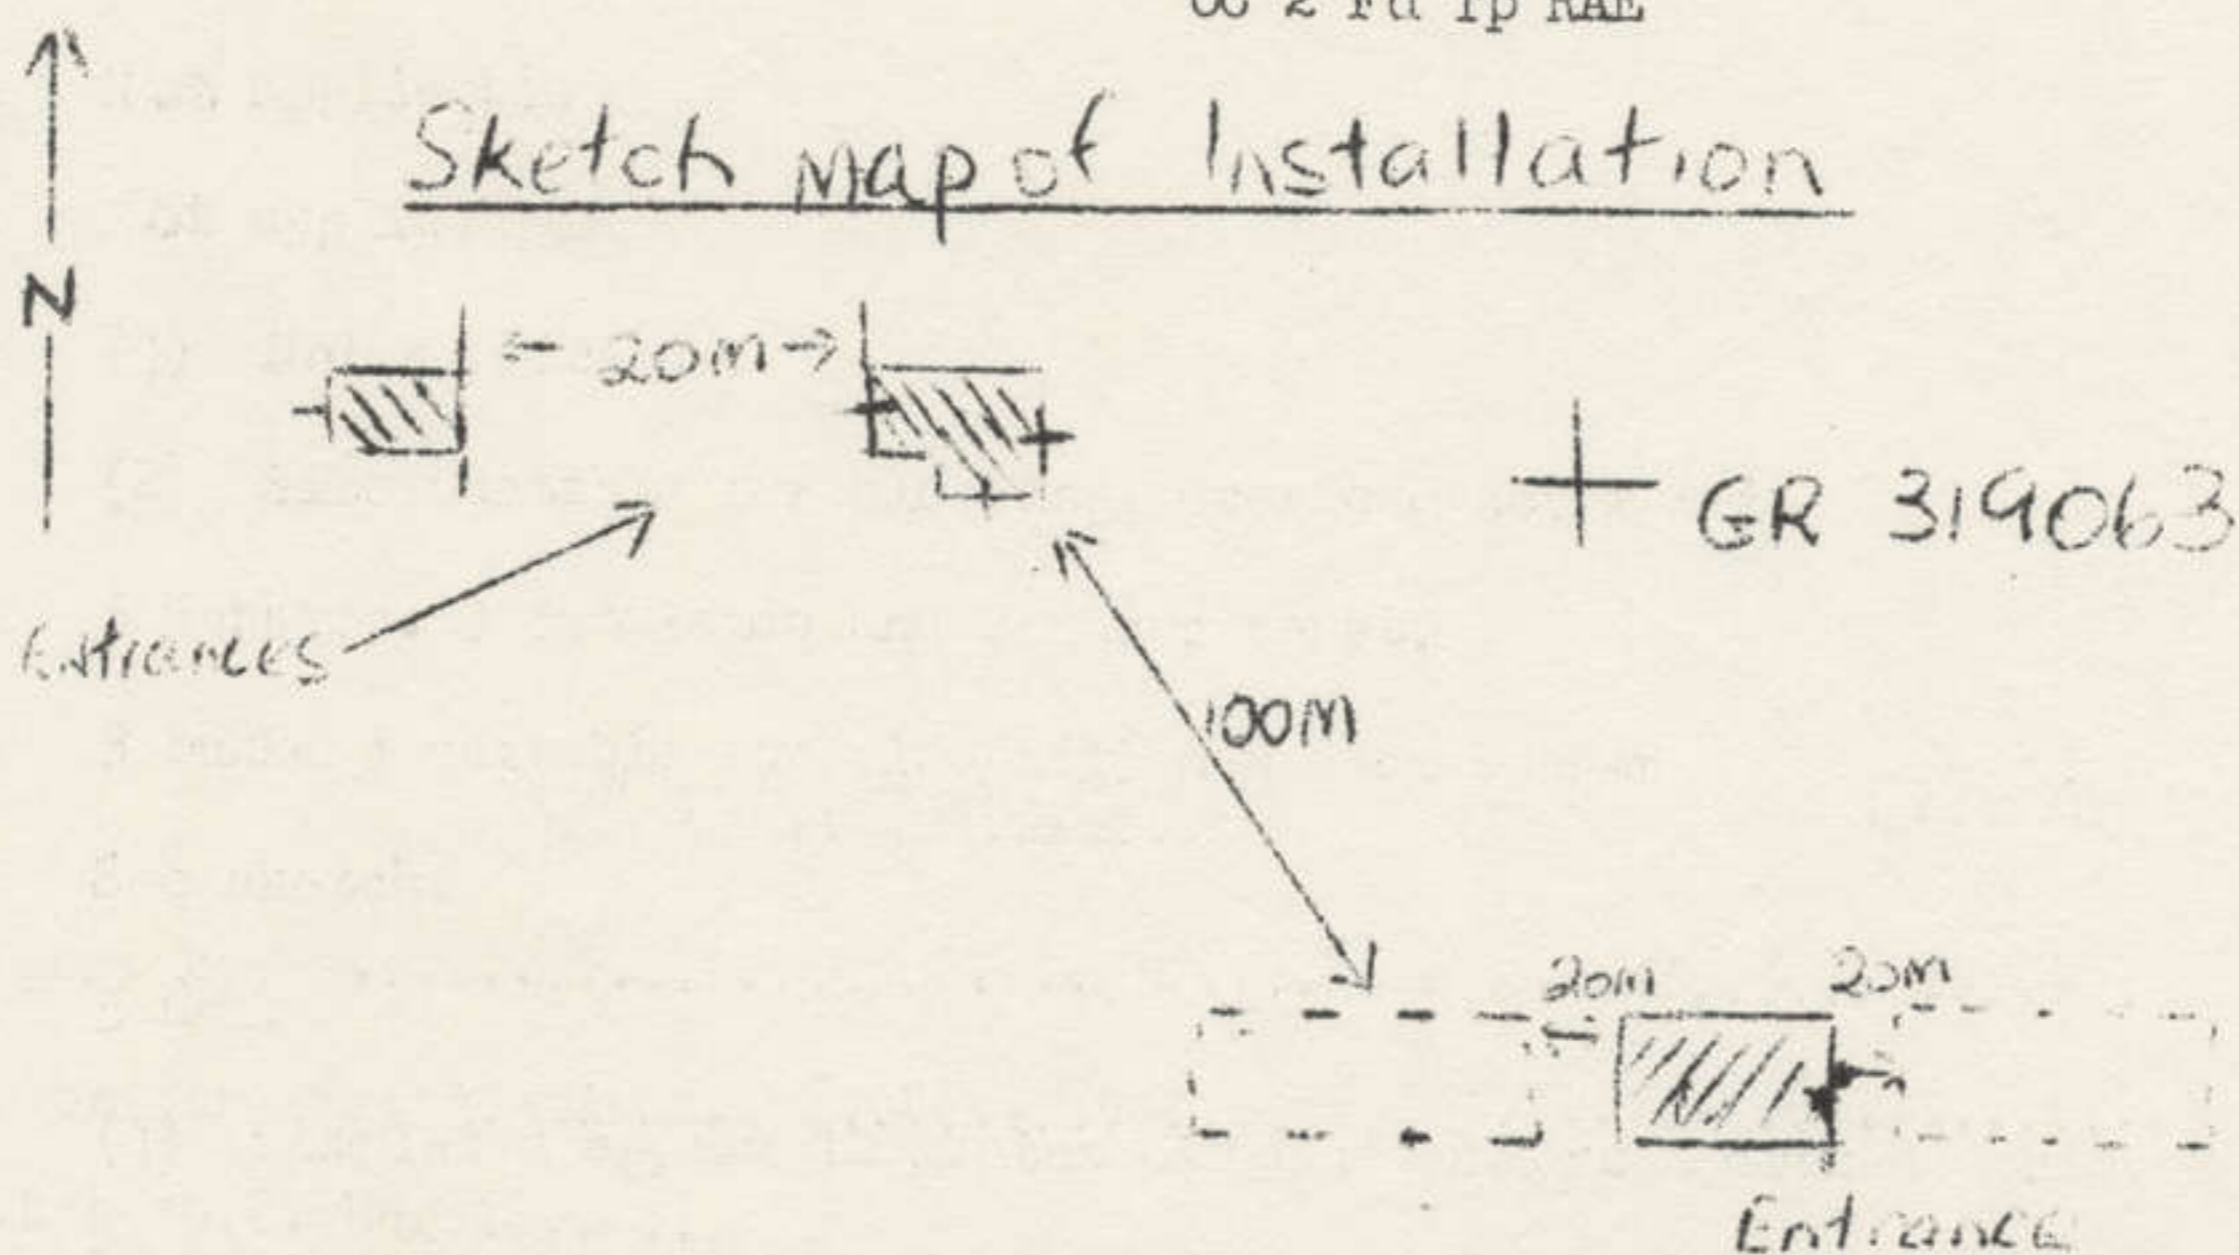 OC 2 Fd Tp RAE
Sketch Map of Installation
N
20m
GR 319063
Entrances
100M
20m 20m
Entrance